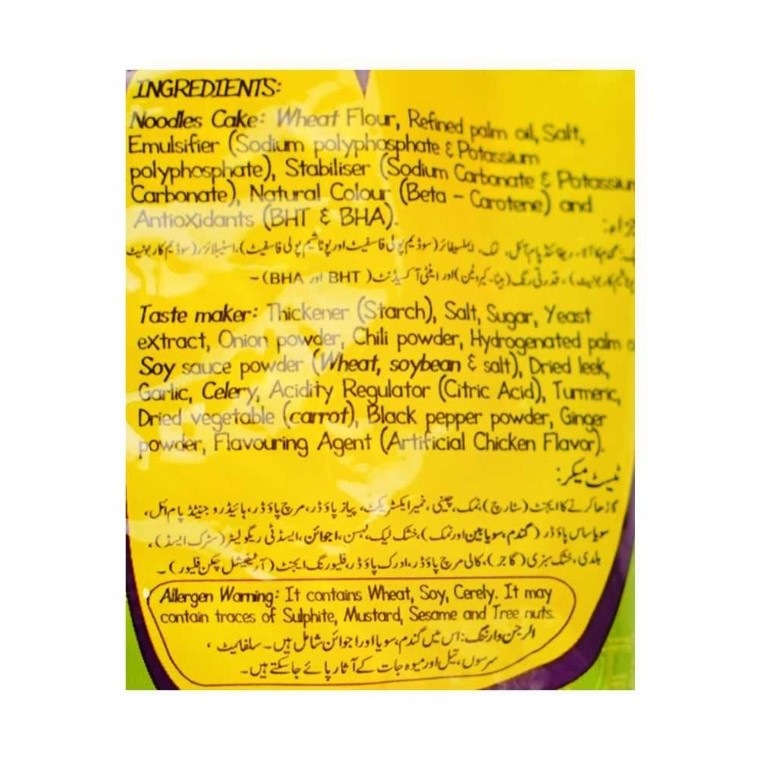 INGREDIENTS:
Noodles Cake: Wheat Flour, Refined palm oil, Salt,
Emulsifier (Sodium polyphosphate & Potassium
polyphosphate), Stabiliser (Sodium Carbonate & Potassium
Carbonate), Natural Colour (Beta - Carotene) and
Antioxidants (BHT & BHA).
گندم کا آٹا، ریفائنڈ پام آئل، نمک، ایملسیفائر (سوڈیم پولی فاسفیٹ اور پوٹاشیم پولی فاسفیٹ)، اسٹیبلائزر (سوڈیم کاربونیٹ
پوٹاشیم کاربونیٹ)، قدرتی رنگ (بیٹا-کیروٹین) اور اینٹی آکسیڈنٹ (BHT اور BHA)۔
Taste maker: Thickener (Starch), Salt, Sugar, Yeast
extract, Onion powder, Chili powder, Hydrogenated palm
Soy sauce powder (Wheat, soybean & salt), Dried leek,
Garlic, Celery, Acidity Regulator (Citric Acid), Turmeric,
Dried vegetable (carrot), Black pepper powder, Ginger
powder, Flavouring Agent (Artificial Chicken Flavor).
ٹیسٹ میکر:
گاڑھا کرنے کا ایجنٹ (سٹارچ)، نمک، چینی، خمیر ایکسٹریکٹ، پیاز پاؤڈر، مرچ پاؤڈر، ہائیڈروجنیٹڈ پام آئل،
سویا ساس پاؤڈر (گندم، سویابین اور نمک)، خشک لیک، لہسن، اجوائن، ایسڈٹی ریگولیٹر (سٹرک ایسڈ)،
ہلدی، خشک سبزی (گاجر)، کالی مرچ پاؤڈر، ادرک پاؤڈر، فلیورنگ ایجنٹ (آرٹیفیشل چکن فلیور)۔
Allergen Warning: It contains Wheat, Soy, Cerely. It may
contain traces of Sulphite, Mustard, Sesame and Tree nuts.
الرجن وارننگ: اس میں گندم، سویا اور اجوائن شامل ہیں۔ سلفائیٹ،
سرسوں، تیل اور میوہ جات کے آثار پائے جا سکتے ہیں۔